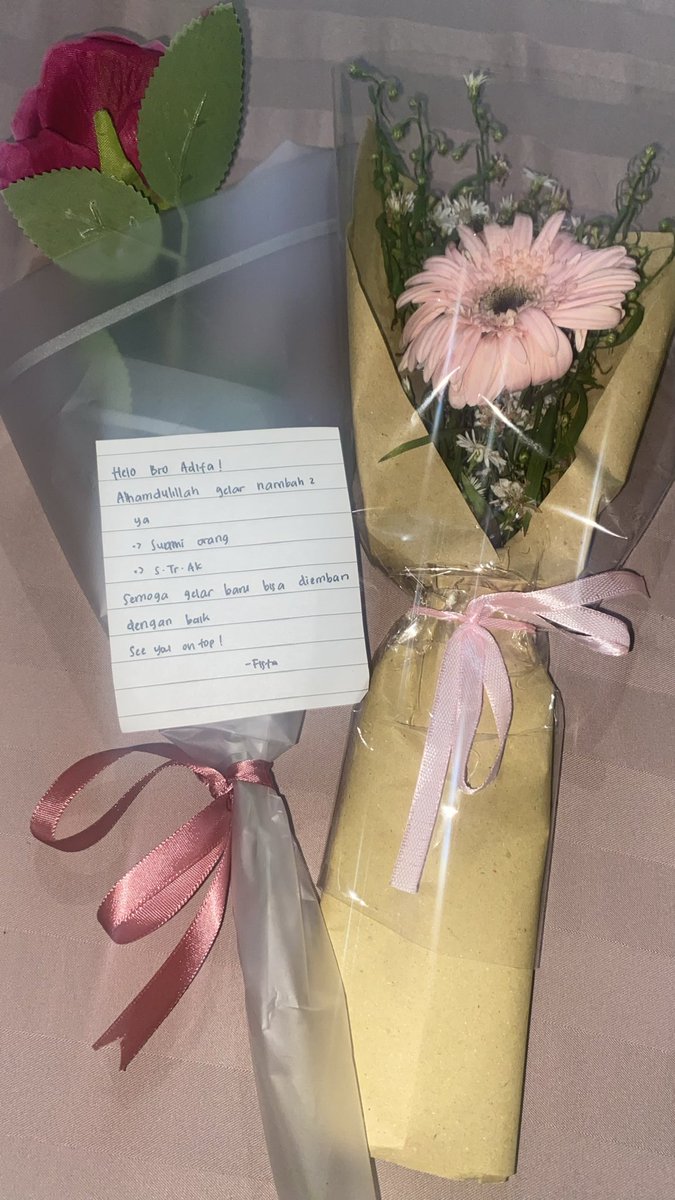 Helo Bro Adifa!
Alhamdulillah gelar nambah 2
ya
-> Suami orang
-> S.Tr.Ak
Semoga gelar baru bisa diemban
dengan baik
See you on top!